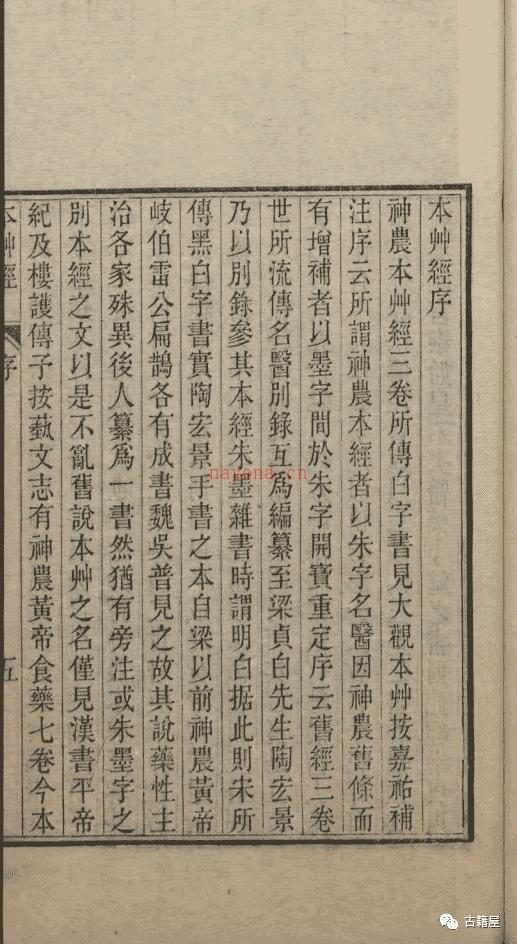 本艸經序
神農本艸經三卷所傳白字書見大觀本艸按嘉祐補
注序云所謂神農本經者以朱字名醫因神農舊條而
有增補者以墨字間於朱字開寶重定序云舊經三卷
世所流傳名醫別錄互爲編纂至梁貞白先生陶宏景
乃以別錄參其本經朱墨雜書時謂明白据此則宋所
傳黑白字書實陶宏景手書之本自梁以前神農黃帝
岐伯雷公扁鵲各有成書魏吳普見之故其說藥性主
治各家殊異後人纂爲一書然猶有旁注或朱墨字之
別本經之文以是不亂舊說本艸之名僅見漢書平帝
紀及樓護傳子按藝文志有神農黃帝食藥七卷今本
本艸經 序 五
nayona.cn
古籍屋